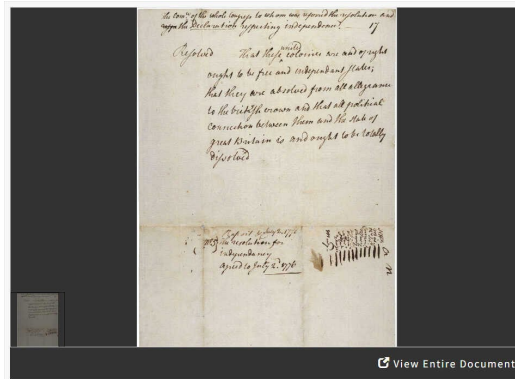 The Com.ee of the whole Congress to whom was referred the resolution and
the Declaration respecting independence. — 17
Resolved That these united colonies are and of right
ought to be free and independant states;
that they are absolved from all allegiance
to the british crown and that all political
connection between them and the state of
great Britain is and ought to be totally
dissolved
Report
the resolution for
independancy
agreed to July 2.d 1776
View Entire Document